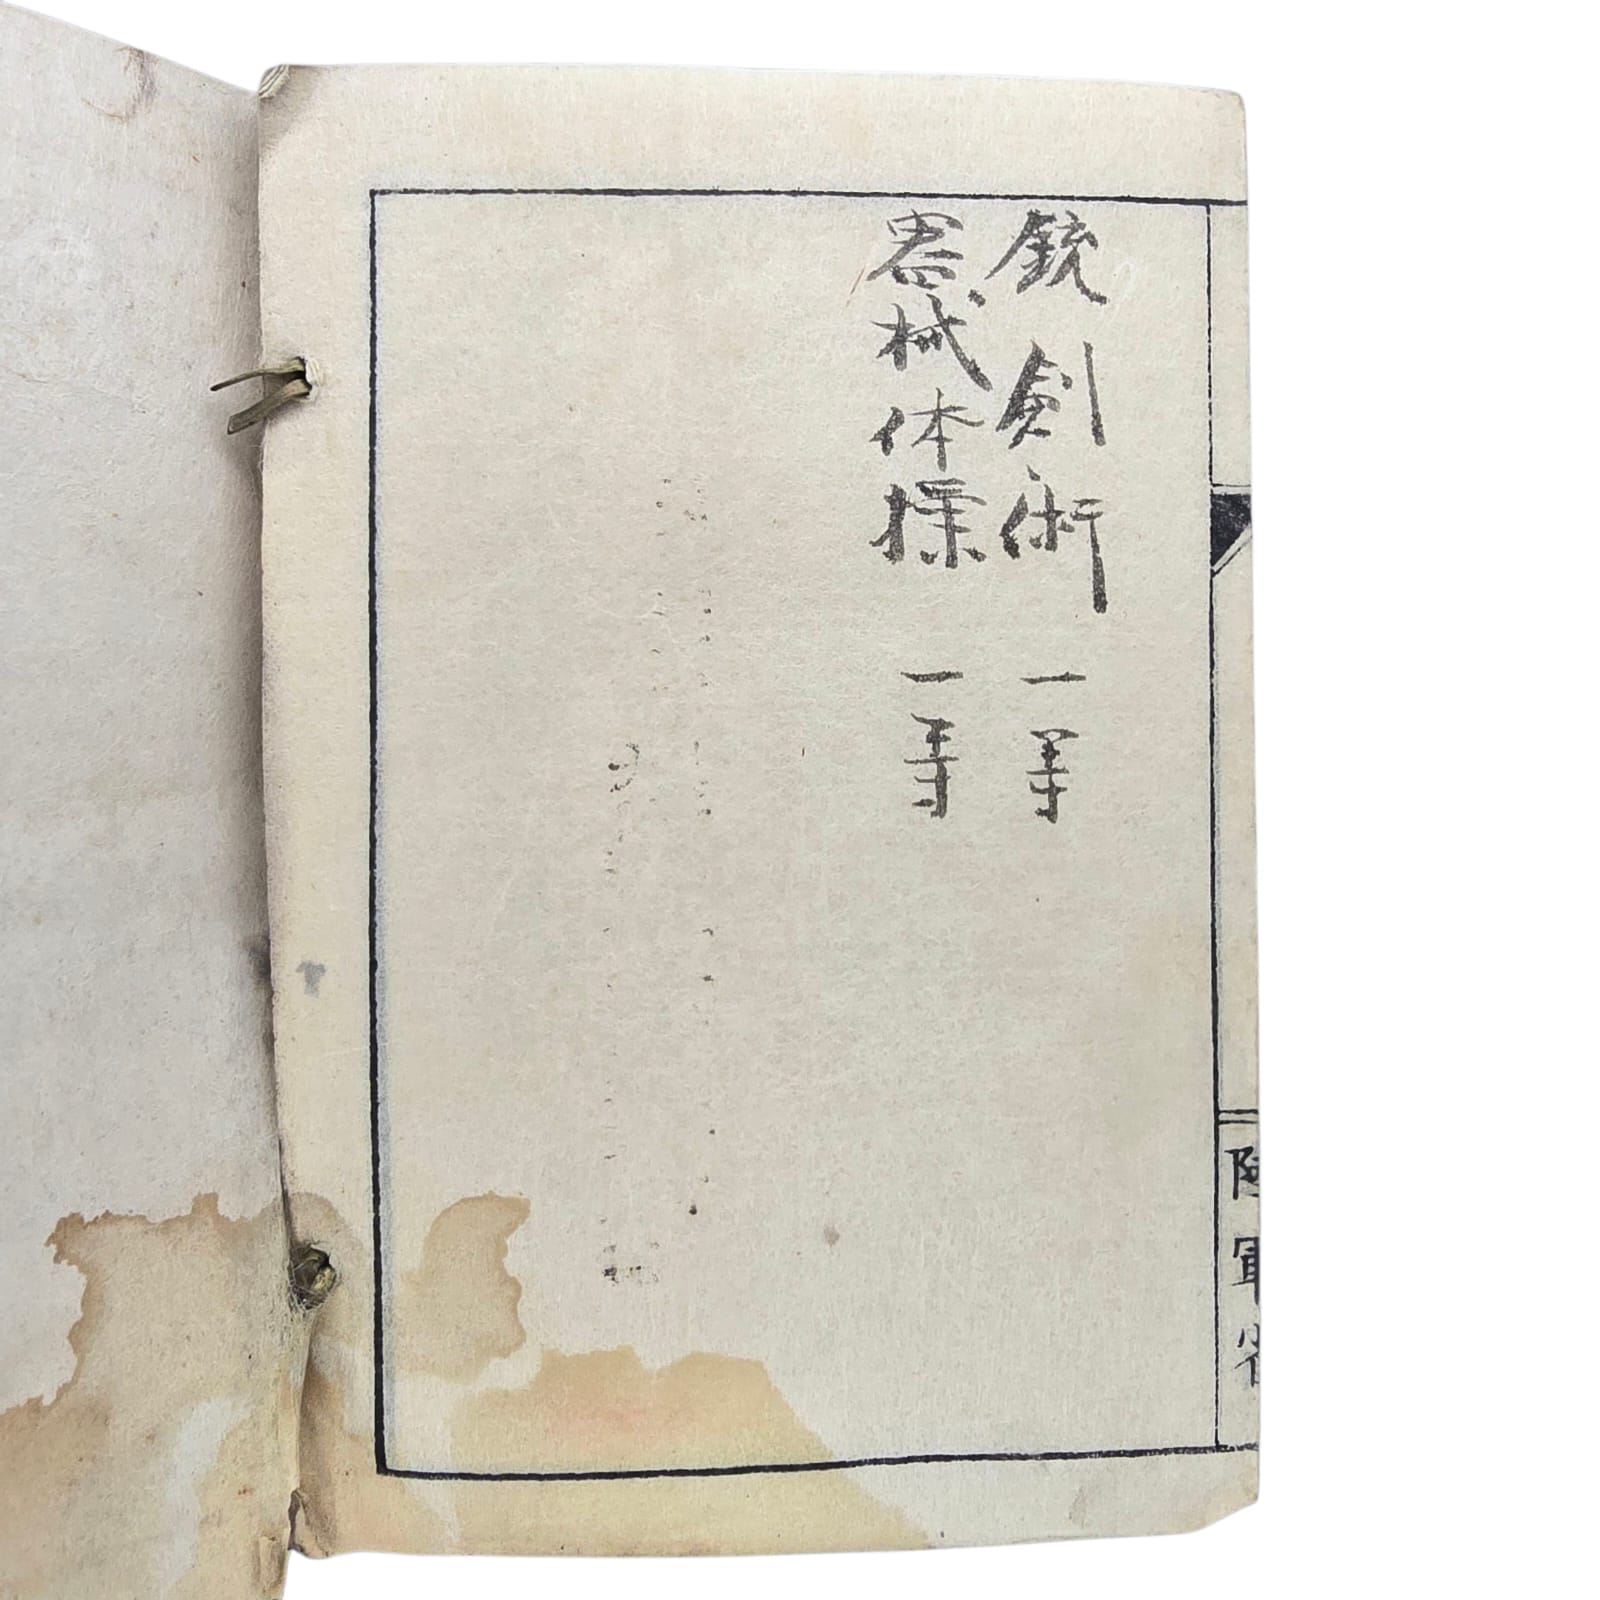 銃剣術 一等
器械体操 一等
陸軍省